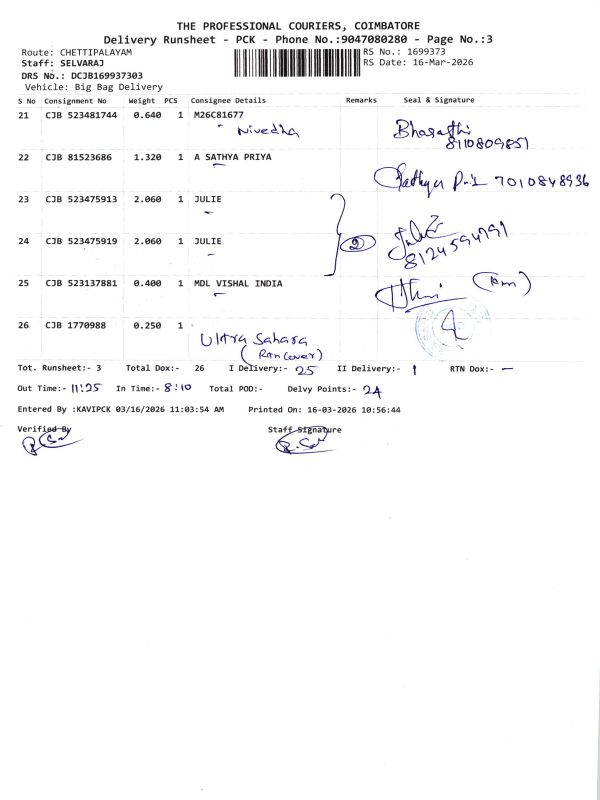 THE PROFESSIONAL COURIERS, COIMBATORE
Delivery Runsheet - PCK - Phone No.:9047080280 - Page No.:3
Route: CHETTIPALAYAM RS No.: 1699373
Staff: SELVARAJ RS Date: 16-Mar-2026
DRS No.: DCJB169937303
Vehicle: Big Bag Delivery
S No Consignment No Weight PCS Consignee Details Remarks Seal & Signature
21 CJB 523481744 0.640 1 M26C81677
Nivedha Bharathi
8110809851
22 CJB 81523686 1.320 1 A SATHYA PRIYA
Sathya P 7010848936
23 CJB 523475913 2.060 1 JULIE
24 CJB 523475919 2.060 1 JULIE 2
8124594791
25 CJB 523137881 0.400 1 MDL VISHAL INDIA
26 CJB 1770988 0.250 1
Ultra Sahara
Tot. Runsheet:- 3 Total Dox:- 26 I Delivery:- 25 II Delivery:- 1 RTN Dox:- —
Out Time:- 11:25 In Time:- 8:10 Total POD:- Delvy Points:- 24
Entered By :KAVIPCK 03/16/2026 11:03:54 AM Printed On: 16-03-2026 10:56:44
Verified By Staff Signature